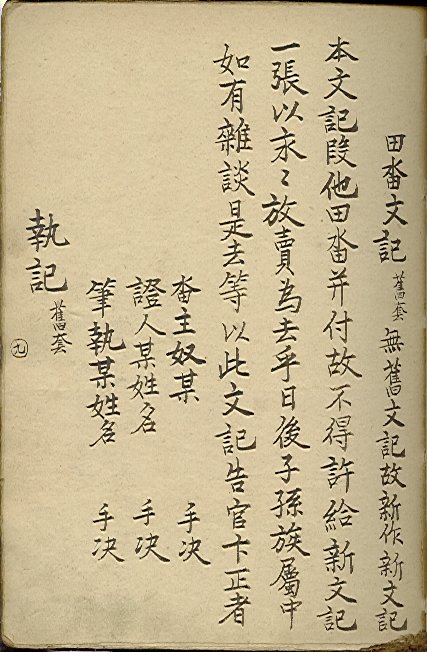 田畓文記 舊套 無舊文記故新作新文記
本文記段他田畓并付故不得許給新文記
一張以永〻放賣為去乎日後子孫族屬中
如有雜談是去等以此文記告官卞正者
畓主奴某 手决
證人某姓名 手决
筆執某姓名 手决
執記 舊套
九